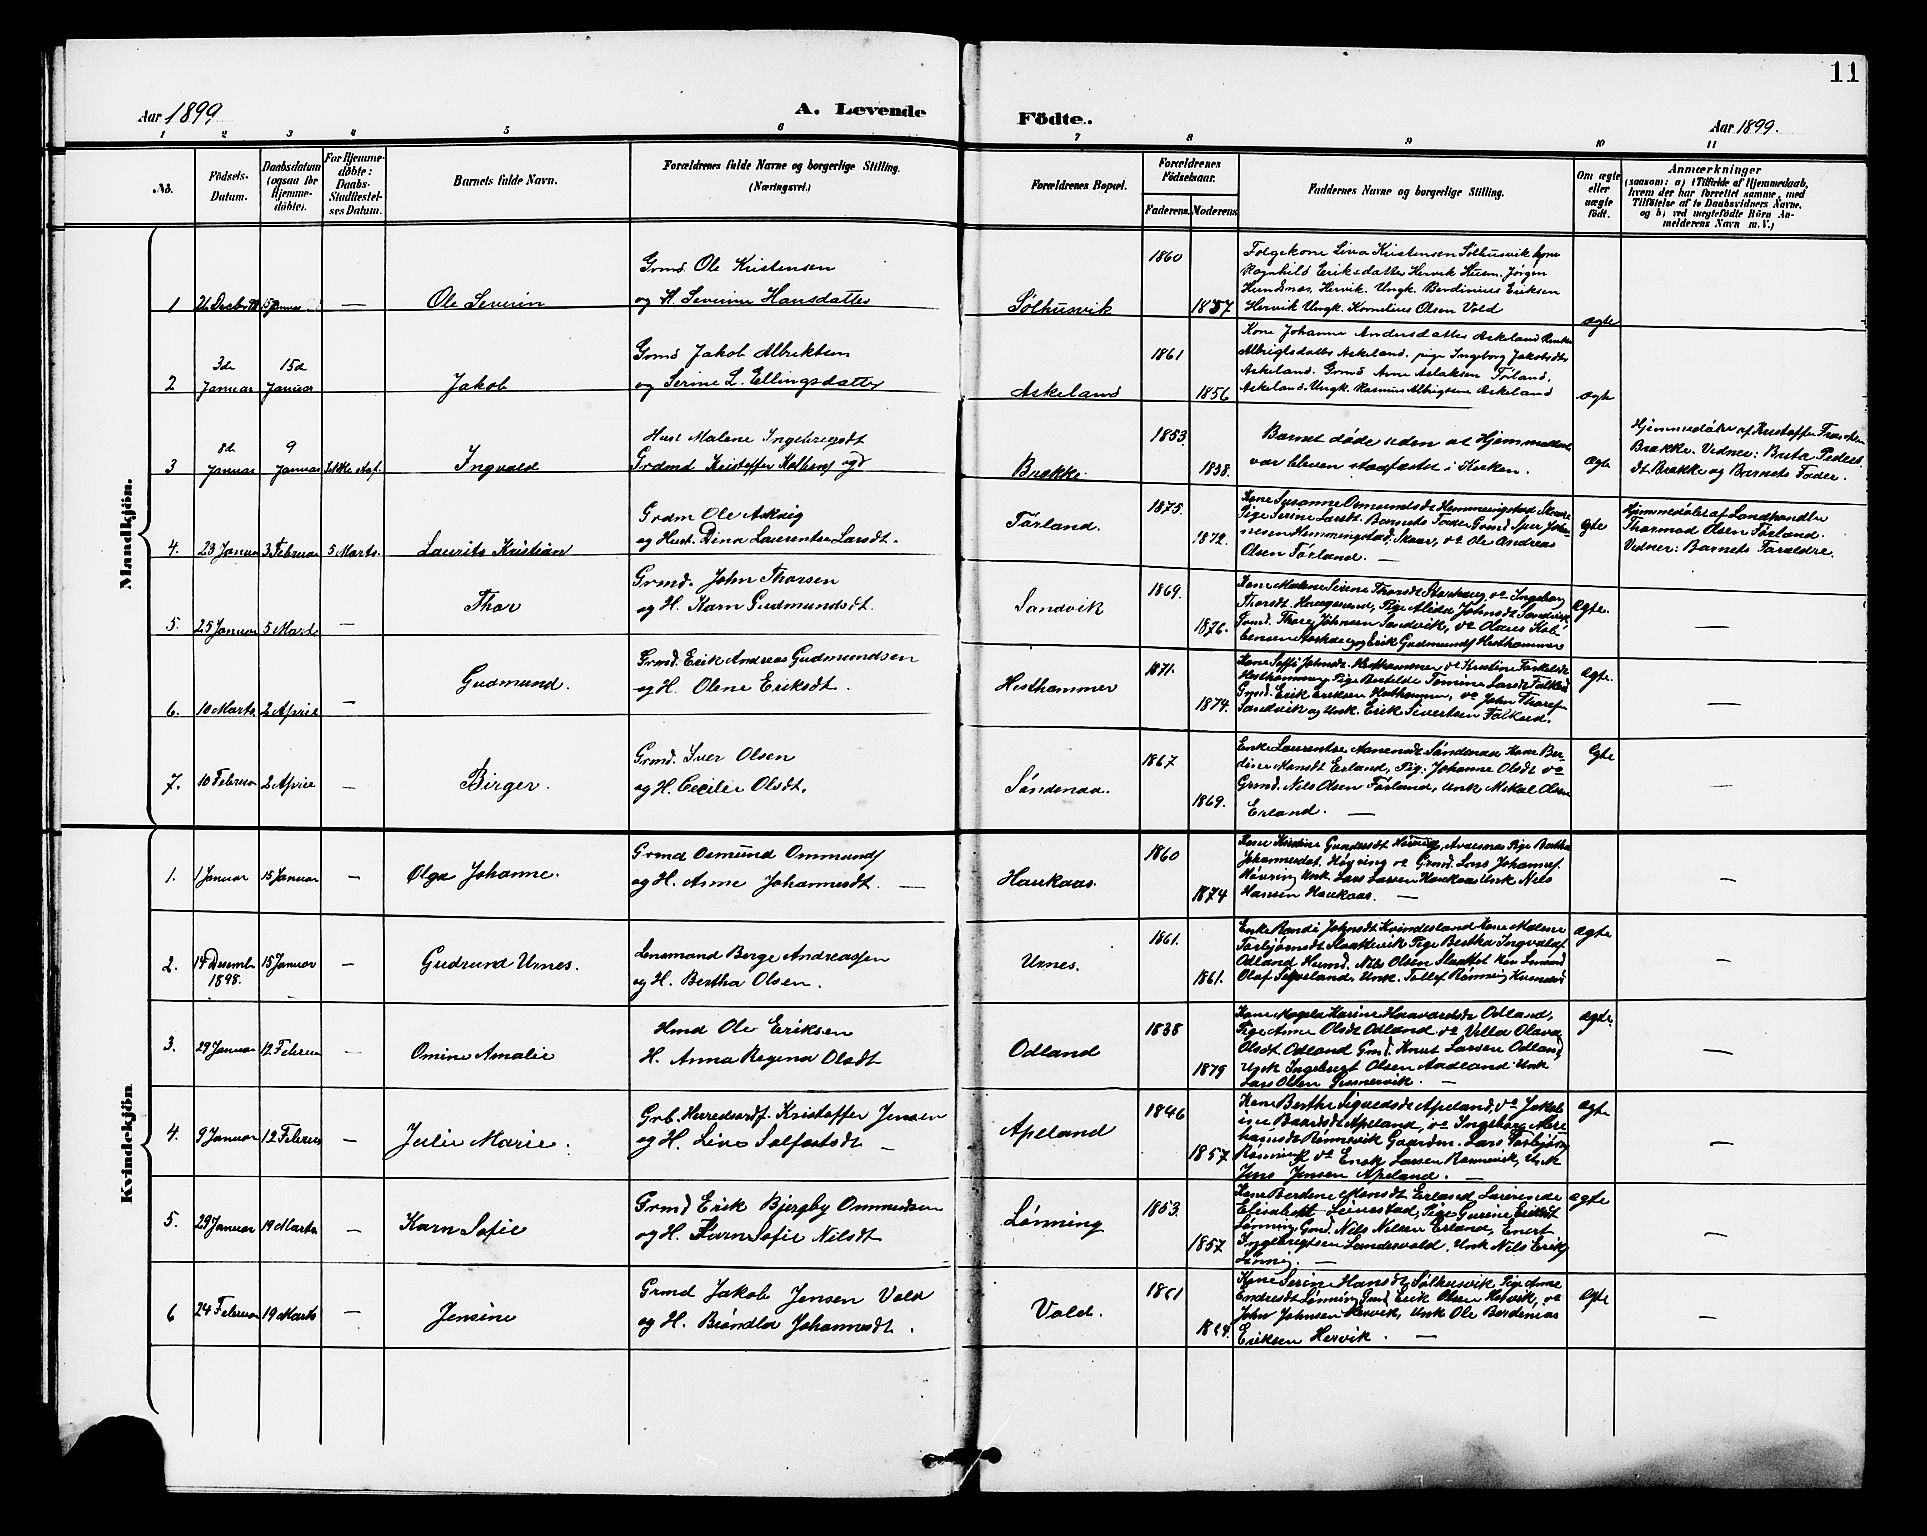 11
Aar 1899
A. Levende
Födte.
Aar 1899.
1 2 3 4 5 6 7 8 9 10 11
No.
Födsels-
Datum.
Daabsdatum
(ogsaa for
Hjemme-
döbte).
For Hjemme-
döbte:
Daabs-
Stadfæstel-
ses Datum.
Barnets fulde Navn.
Forældrenes fulde Navne og borgerlige Stilling.
(Næringsvei.)
Forældrenes Bopæl.
Forældrenes
Födselsaar.
Faderens.
Moderens.
Faddernes Navne og borgerlige Stilling.
Om ægte
eller
uægte
födt.
Anmærkninger
(saasom: a) i Tilfælde af Hjemmedaab,
hvem der har forrettet samme, med
Tilföielse af to Daabsvidners Navne.
og b) ved uægtefödte Börn An-
melderens Navn m. V.)
Mandkjön.
1
Ole Severin
Grmd. Ole Kristensen
og H. Severine Hansdatter
Sølhusvik
1860
1857
Følgekone Lina Kristensen Sølhusvik
Ragnhild Eriksdatter Hervik Husm. Jørgen
Hundsnæs, Hervik. Ungk. Berdinius Eriksen
Hervik Ungk. Kornelius Olsen Vold
ægte
2
3de Januar
15de Januar
Jakob
Grmd Jakob Albriktsen
og Serine L. Ellingsdatter
Askeland
1861
1856
Kone Johanne Andersdatter Askeland
Albrigtsdatter Askeland. pige Ingeborg Jakobsdtr
Askeland. Grmd Arne Aslaksen Førland,
Askeland. Ungk. Rasmus Albrigtsen Askeland
ægte
3
8de Januar
9 Januar
Ingvald
Hust Malene Ingebregsdt
Grdmd Kristoffer
Brække
1853.
1838.
Barnet døde uden at Hjemmedaab
var bleven stadfæstet i Kirken.
ægte
Hjemmedøbt af Kristoffer
Brække. Vidner: Berta Peders
dt Brække og Barnets Fader.
4.
23 Januar
3 Februar
5 Marts
Laurits Kristian
Grdm Ole Askvig
og Hust. Dina Laurentse Larsdt.
Førland.
1875.
1872.
Kone Susanne Osmundsdt Hemmingstad Skaar
Pige Serine Larsdt. Barnets Fader Grmd. Iver Johan
nesen Hemmingstad, Skaar, do Ole Andreas
Olsen Førland. —
Egte
Hjemmedøbt af Landhandler
Thormod Olsen Førland.
Vidner: Barnets Forældre.
5.
25 Januar
5 Mart
—
Thor
Grmd. John Thorsen
og H. Karn Gudmundsdt.
Sandvik
1869.
1876.
Kone Malene Sivine Thorsdt do Ingeborg
Thorsdt Haugesund, Pige Alida Johnsdt Sandvik
Grmd. Thore Johnsen Sandvik, do
og Erik Gudmunds Hesthammer
Ægte.
—
6.
10 Marts
2 April
—
Gudmund.
Grmd. Erik Andreas Gudmundsen
og H. Olene Eriksdt.
Hesthammer
1871.
1874.
Kone Soffi Johnsdt Hesthammer do Kristine
Hesthammer, Pige Bertelde Tomine Larsdt Falkeid
Grmd. Erik Eriksen Hesthammer, do John Thores
Sandvik og Unk. Erik Sivertsen Falkeid.
Ægte.
—
7.
10 Februar
2 April
—
Birger.
Grmd. Iver Olsen
og H. Cecilie Olsdt.
Søndenaa.
1867
1869.
Enke Laurentse Aanensdt Søndenaa Kone Ber-
dine Monsdt Erland, Pig. Johanne Olsdt do
Grmd. Nils Olsen Førland, Unk Mikal Olsen
Erland. —
Egte
—
Kvindekjön
1.
1 Januar
15 Januar
—
Olga Johanne.
Grmd Osmund Ommunds
og H. Anne Johannesdt. —
Haukaas.
1860
1874
Kone Kirstine Gundersdt
Johannesdat. Høyving do Grmd. Lars Johannes
Høyving Unk. Lars Larsen Haukaas Unk Nils
Hansen Haukaas. —
—
2.
14 Desemb
1898.
15 Januar
—
Gudrund Urnes.
Lensmand Berge Andreassen
og H. Bertha Olsen.
Urnes.
1861.
1861.
Enke Randi Johnsdt Kvindesland Kone Malene
Torbjørnsdt Slaattevik Pige Bertha Ingvalds
Odland Husmd. Nils Olsen Slaattet
Olaf Unk. Tollef Rønnevig
Ægte
—
3.
29 Januar
12 Februar
—
Omine Amalie
Hmd Ole Eriksen
H. Anna Regina Olsdt
Odland
1838
1879
Kone Magela Karine Haavardsdt Odland,
Pige Anne Olsdt Odland do Villa Olava
Olsdt Odland Grmd. Knut Larsen Odland
Ugk Ingebregt Olsen Aadland Unk
Lars Olsen —
Ægte.
—
4.
9 Januar
12 Februar
—
Julie Marie.
Grb. Herredsordf. Kristoffer Jensen
og H. Live Solfæstsdt —
Apeland
1846
1857
Kone Berthe Apeland, do Jakob
ine Baardsdt Apeland, do Ingeborg
Rønnevik Gaardm. Lars Torbjørns
do Enok Larsen Rønnevik, Unk
Jens Jensen Apeland. —
Ægte
—
5.
29 Januar
19 Marts
—
Karn Sofie
Grmd Erik Bjergby Ommundsen
og H. Karn Sofie Nilsdt
Lønning
1853.
1857
Kone Berdene Monsdt Erland Lærerinde
Elisabet Leinestad, Pige Gurine Eriksdt
Lønning Grmd. Nils Nilsen Erland, Enert
Ingebregtsen Landesvold, Unk Nils Erik
Lønning —
Ægte
—
6
24 Februar
19 Marts
—
Jensine
Grmd Jakob Jensen Vold
og H. Brøndla Johannesdt.
Vold.
1861
Kone Serine Hansdt Sølhusvik Pige Anne
Endresdt Lønning Grmd Erik Olsen Hervik, do
John Johnsen Hervik, Unk Ole Berdenias
Eriksen Hervik. —
Ægte
—